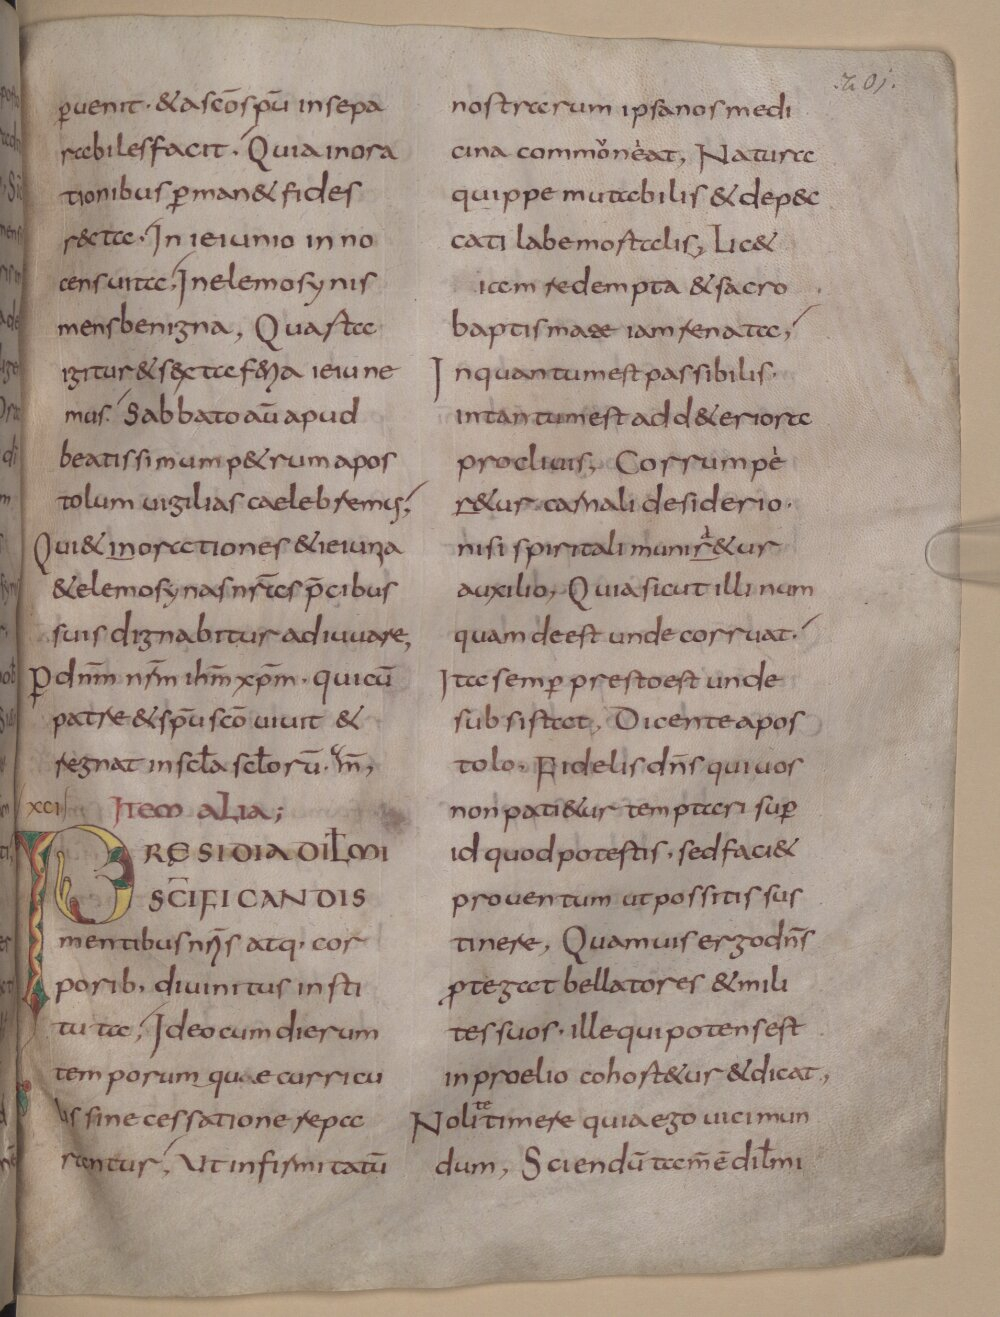 201.
ꝑuenit · & a sc̄o sp̄u insepa
rabiles facit · Quia in ora
tionibus ꝑman& fides
r&cta · In ieiunio inno
censuita; In elemosynis
mens benigna, Quarta
igitur & s&cta feria ieiune
mus · Sabbato aū apud
beatissimum p&rum apos
tolum uigilias caelebremus;
Qui & in orationes & ieiunia
& elemosynas nr̄as p̄cibus
suis dignabitur adiuuare,
P dn̄m nr̄m ih̄m xp̄m · qui cū
patre & sp̄u sc̄o uiuit &
regnat in scła scłorū · am̄,
xcii Item alia;
PRĘSIDIA DIŁMI
SC̄IFICANDIS
mentibus nr̄is atq· cor
porib, diuinitus insti
tuta; Ideo cum dierum
temporum quae curricu
lis sine cessatione repa
rantur; Ut infirmitatū
nostrarum ipsa nos medi
cina commoneat, Natura
quippe mutabilis & dep&c
cati labe mortalis, Lic&
iam redempta & sacro
baptismate iam renata;
Inquantum est passibilis ·
intantum est ad d&eriora
procliuis, Corrumpe
r&ur carnali desiderio ·
nisi spiritali munir&ur
auxilio, Quia sicut illi num
quam deest unde corruat ·
Ita semꝑ presto est unde
subsistat, Dicente apos
tolo · Fidelis dn̄s qui uos
non pati&ur temptari suꝑ
id quod potestis · sed faci&
prouentum ut possitis sus
tinere, Quamuis ergo dn̄s
ꝓtegat bellatores & mili
tes suos · ille qui potens est
in proelio cohort&ur & dicat,
Nolite timere quia ego uici mun
dum, Sciendū tam̄ ē diłmi